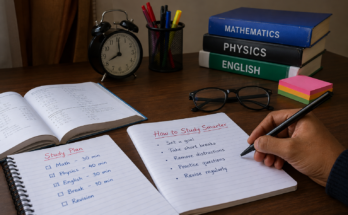 MATHEMATICS
PHYSICS
ENGLISH
Study Plan
Math - 50 min
Physics - 40 min
English - 30 min
Break - 10 min
Revision
How to Study Smarter
Set a goal
Take short breaks
Remove distractions
Practice questions
Revise regularly